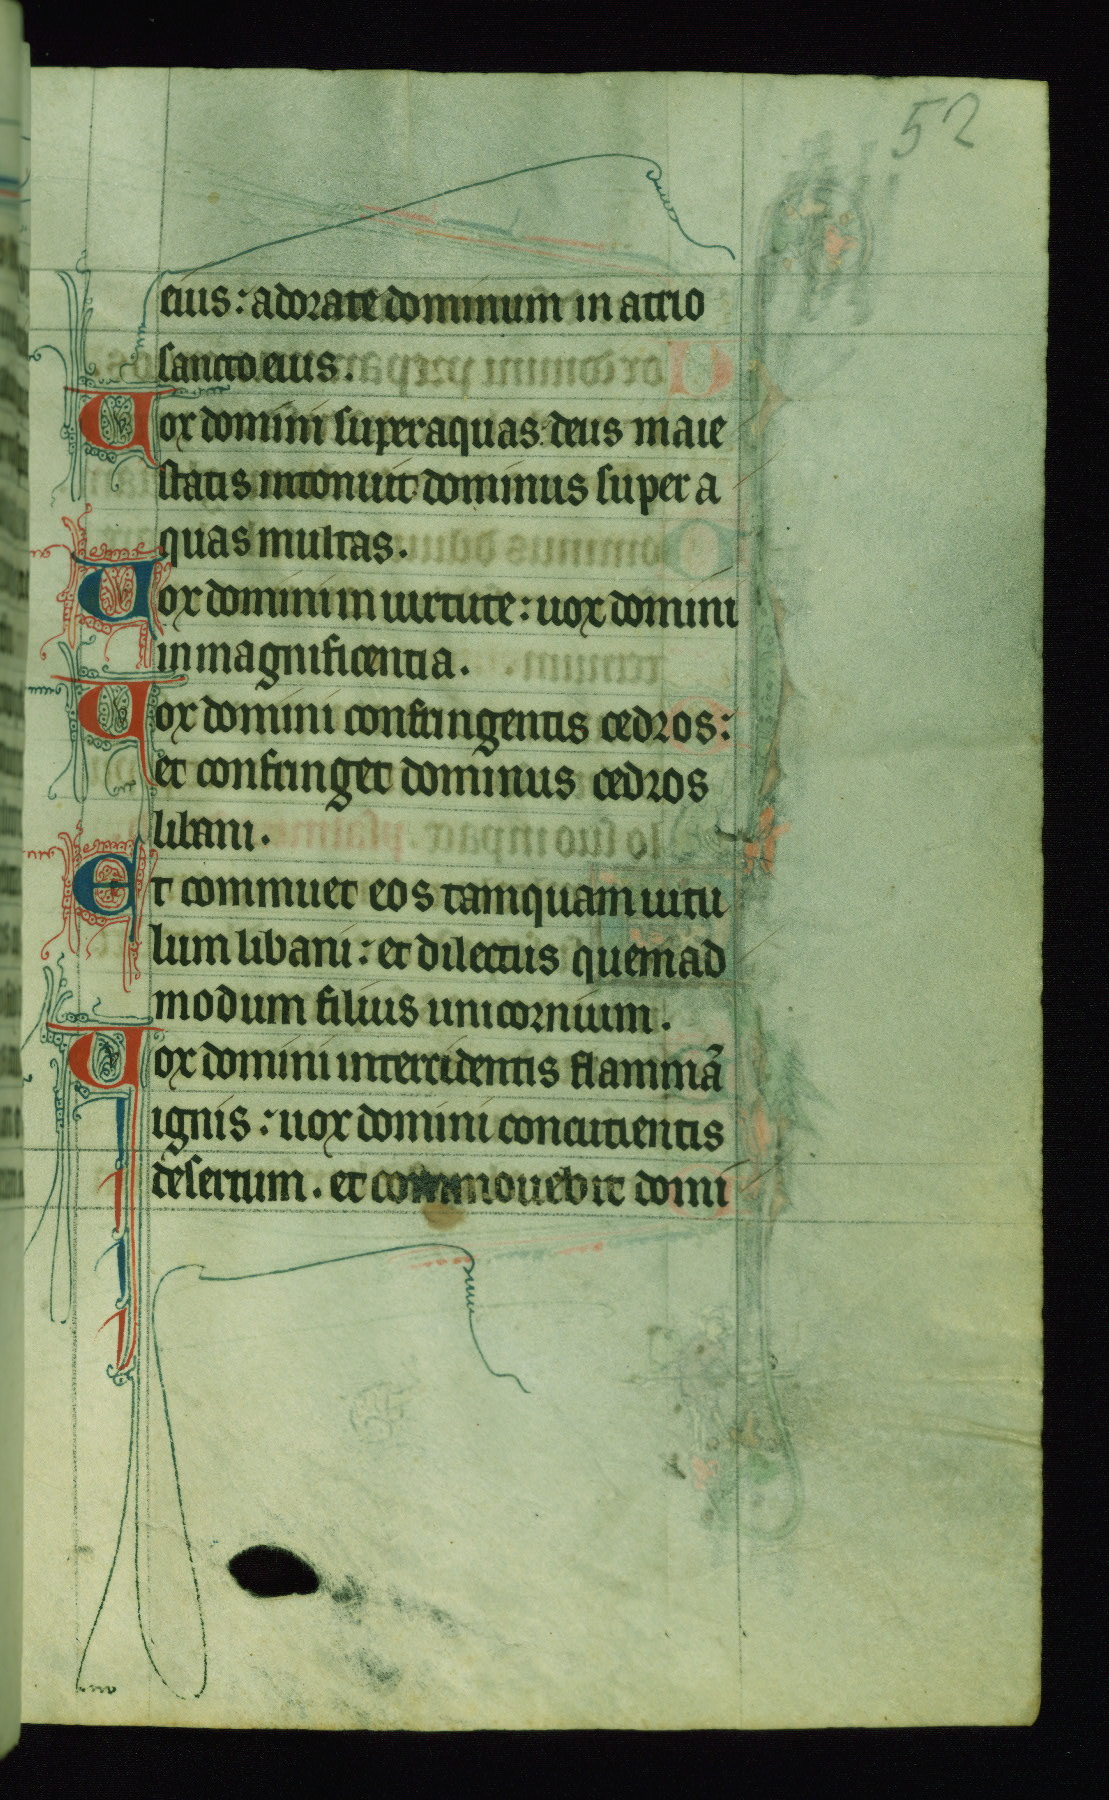 52
eius : adorate dominum in atrio
sancto eius .
Uox domini super aquas deus maie
statis intonuit dominus super a
quas multas .
Uox domini in uirtute : uox domini
in magnificentia .
Uox domini confringentis cedros :
et confringet dominus cedros
libani .
Et commuet eos tamquam uitu
lum libani : et dilectus quemad
modum filius unicornium .
Uox domini intercidentis flammā
ignis : uox domini concutientis
desertum . et commouebit domi